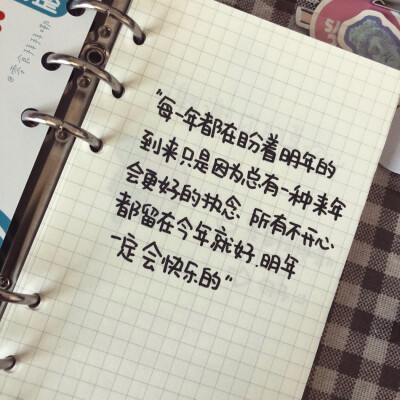 "每一年都在盼着明年的
到来只是因为总有一种来年
会更好的执念.所有不开心
都留在今年就好.明年
一定会快乐的"